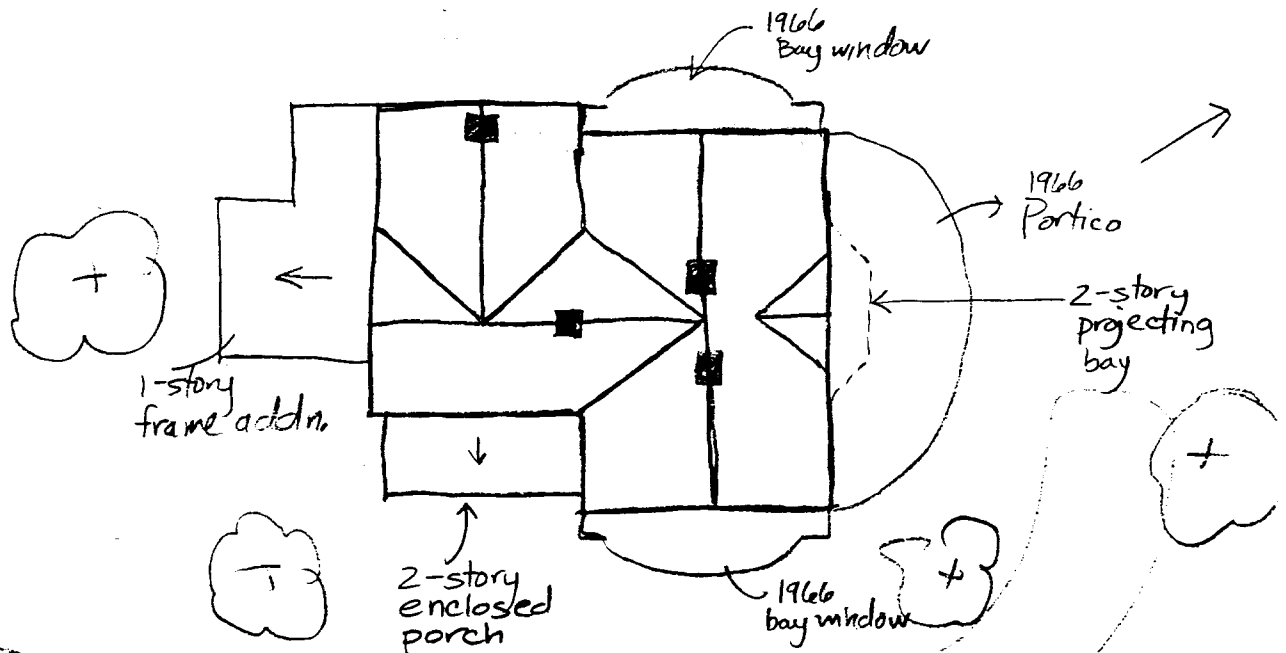 1966
Bay window
1966
Portico
2-story
projecting
bay
1-story
frame addn.
2-story
enclosed
porch
1966
bay window